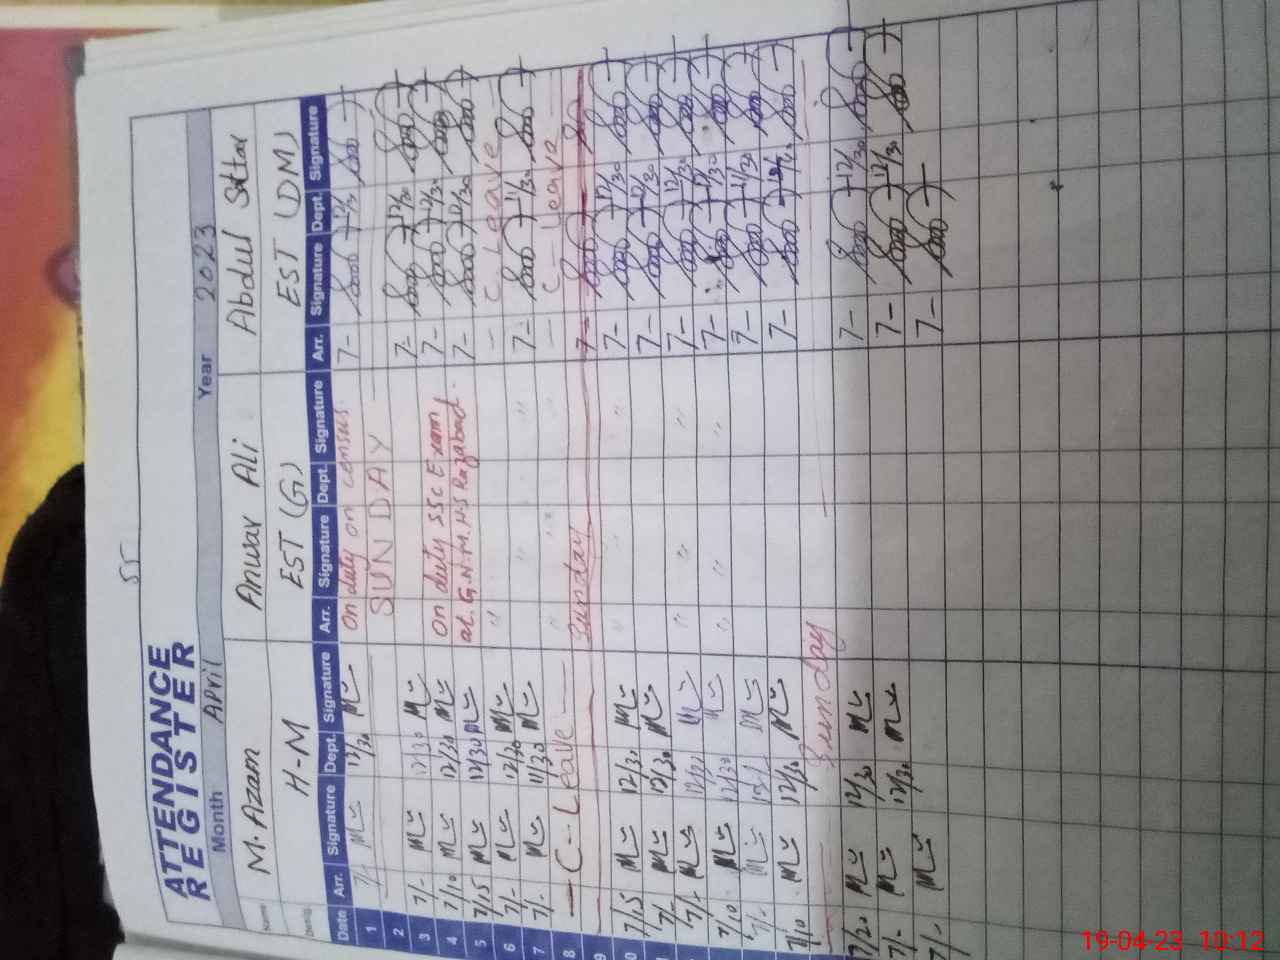 55
ATTENDANCE
REGISTER
Month April Year 2023
Name M. Azam Anwar Ali Abdul Sattar
Desig. H-M EST (G) EST (DM)
Date Arr. Signature Dept. Signature Arr. Signature Dept. Signature Arr. Signature Dept. Signature
1 7/- 12/30 On duty on census. 7- 12/30
2 SUNDAY
3 7/- 12/30 7- 12/30
4 7/10 12/30 On duty SSC Exam 7- 12/30
5 7/15 12/30 at. G.N.M. HS Razabad. 7- 12/30
6 7/- 12/30 " — C Leave —
7 7/- 11/30 " " 7- 11/30
8 — C - Leave — " " — C - Leave —
9 Sunday 7-
10 7/15 12/30 " " 7- 12/30
7/- 12/30 7- 12/30
7/- 12/30 " " 7- 12/30
7/10 12/30 " " 7- 12/30
7/- 12/- 7- 11/30
7/10 12/30 7- 12/-
Sunday
7/20 12/30 7- 12/30
7/- 12/30 7- 12/30
7/- 7-
19-04-23 10:12